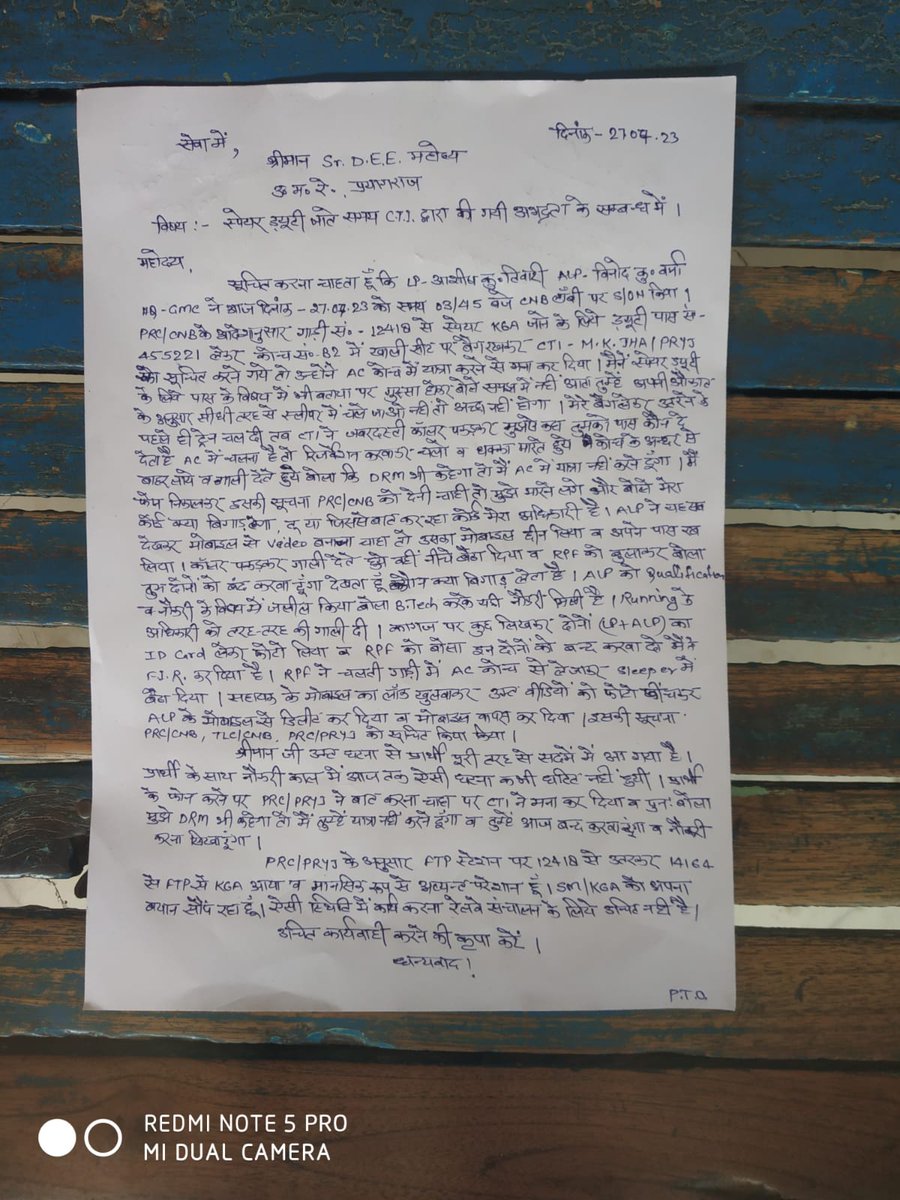 सेवा में,
दिनांक - 27.07.23
श्रीमान Sr. D.E.E. महोदय
उ० म० रे०, प्रयागराज
विषय :- स्पेयर ड्यूटी जाते समय C.T.I. द्वारा की गयी अभद्रता के सम्बन्ध में ।
महोदय,
सूचित करना चाहता हूँ कि LP- आशीष कु० तिवारी ALP- विनोद कु० वर्मा
HQ- GMC ने आज दिनांक - 27.07.23 को समय 03/45 बजे CNB लॉबी पर S/ON किया ।
PRC/CNB के आदेशानुसार गाड़ी सं० - 12418 से स्पेयर KGA जाने के लिये ड्यूटी पास सं०-
455221 लेकर कोच सं०- B2 में खाली सीट पर बैग रखकर CTI - M.K. JHA / PRYJ
को सूचित करने गये तो उन्होंने AC कोच में यात्रा करने से मना कर दिया । मैंने स्पेयर ड्यूटी
के लिये पास के विषय में भी बताया पर गुस्सा होकर बोले समझ में नहीं आता तुम्हें अपनी औकात
के अनुसार सीधी तरह से स्लीपर में चले जाओ नहीं तो अच्छा नहीं होगा । मेरे बैग लेकर उतरने के
पहले ही ट्रेन चल दी तब CTI ने जबरदस्ती कॉलर पकड़कर मुझसे कहा तुमको पास कौन दे
देता है AC में चलना है तो रिजर्वेशन करवाकर चलो व धक्का मारते हुये कोच के अन्दर से
बाहर लाये व गाली देते हुये बोला कि DRM भी कहेगा तो मैं AC में यात्रा नहीं करने दूँगा । मैं
फोन निकालकर इसकी सूचना PRC/CNB को देनी चाही तो मुझे मारने लगे और बोले मेरा
कोई क्या बिगाड़ लेगा, तू या जिससे बात कर रहा कोई मेरा अधिकारी है । ALP ने यह सब
देखकर मोबाइल से Video बनाना चाहा तो उसका मोबाइल छीन लिया व अपने पास रख
लिया । कॉलर पकड़कर गाली देते हुये वहीं नीचे बैठा दिया व RPF को बुलाकर बोला
तुम दोनों को बंद करवा दूंगा देखता हूं कौन क्या बिगाड़ लेता है । ALP को Qualification
व नौकरी के विषय में जलील किया बोला B.Tech करके यही नौकरी मिली है । Running के
अधिकारी को तरह-तरह की गाली दी । कागज पर कुछ लिखकर दोनों (LP+ALP) का
ID Card लेकर फोटो लिया व RPF को बोला इन दोनों को बन्द करवा दो मैंने
F.I.R. कर दिया है । RPF ने चलती गाड़ी में AC कोच से लेजाकर Sleeper में
बैठा दिया । सहायक के मोबाइल का लॉक खुलवाकर उक्त वीडियो को फोटो खींचकर
ALP के मोबाइल से डिलीट कर दिया व मोबाइल वापस कर दिया । इसकी सूचना
PRC/CNB, TLC/CNB, PRC/PRYJ को सूचित किया किया ।
श्रीमान जी उक्त घटना से प्रार्थी पूरी तरह से सदमें में आ गया है ।
प्रार्थी के साथ नौकरी काल में आज तक ऐसी घटना कभी घटित नहीं हुयी । प्रार्थी
के फोन करने पर PRC/PRYJ ने बात करना चाहा पर CTI ने मना कर दिया व पुनः बोला
मुझे DRM भी कहेगा तो मैं तुम्हें यात्रा नहीं करने दूँगा व तुम्हें आज बन्द करवा दूंगा व नौकरी
करना सिखा दूंगा ।
PRC/PRYJ के अनुसार FTP स्टेशन पर 12418 से उतरकर 14164
से FTP से KGA आया व मानसिक रूप से अत्यन्त परेशान हूँ । SM/KGA को अपना
बयान सौंप रहा हूँ । ऐसी स्थिति में कार्य करना रेलवे संचालन के लिये उचित नहीं है ।
उचित कार्यवाही करने की कृपा करें ।
धन्यवाद !
P.T.O.
REDMI NOTE 5 PRO
MI DUAL CAMERA